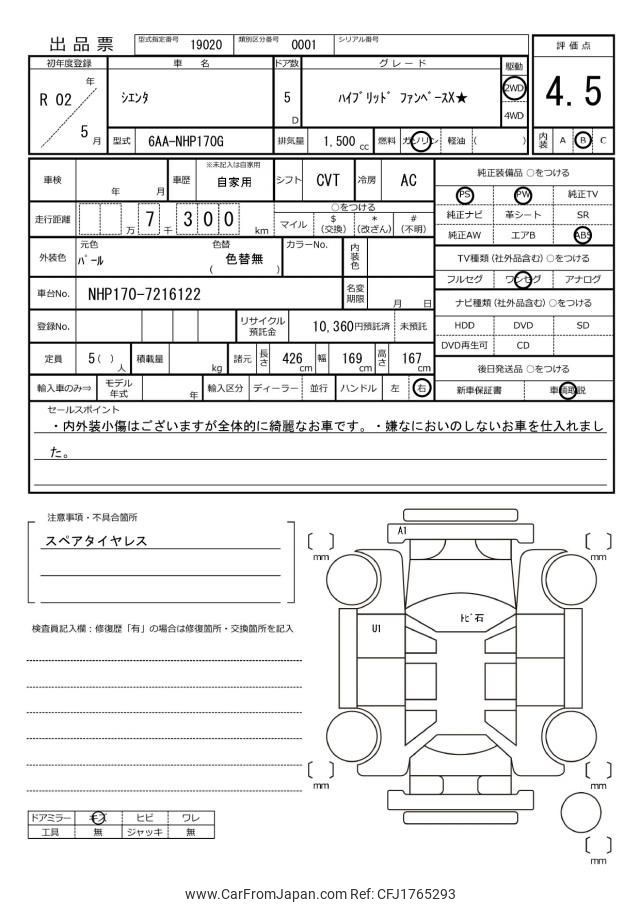 出品票 型式指定番号 19020 類別区分番号 0001 シリアル番号
評価点
4.5
内装 A B C
初年度登録 車名 ドア数 グレード 駆動
R 02 年 5 月 シエンタ 5 D ハイブリッド ファンベースX★ 2WD 4WD
型式 6AA-NHP170G 排気量 1,500 cc 燃料 ガソリン 軽油 ( )
車検 年 月 車歴 ※未記入は自家用 自家用 シフト CVT 冷房 AC
走行距離 万 7 千 3 0 0 km
○をつける
マイル $(交換) *(改ざん) #(不明)
外装色 元色 パール 色替 ( 色替無 ) カラーNo. 内装色
車台No. NHP170-7216122 名変期限 月 日
登録No. リサイクル預託金 10,360円預託済 未預託
定員 5( ) 人 積載量 kg 諸元 長さ 426 cm 幅 169 cm 高さ 167 cm
輸入車のみ⇒ モデル年式 年 輸入区分 ディーラー 並行 ハンドル 左 右
純正装備品 ○をつける
PS PW 純正TV
純正ナビ 革シート SR
純正AW エアB ABS
TV種類(社外品含む)○をつける
フルセグ ワンセグ アナログ
ナビ種類(社外品含む)○をつける
HDD DVD SD
DVD再生可 CD
後日発送品 ○をつける
新車保証書 車輌取説
セールスポイント
・内外装小傷はございますが全体的に綺麗なお車です。・嫌なにおいのしないお車を仕入れまし
た。
注意事項・不具合箇所
スペアタイヤレス
検査員記入欄：修復歴「有」の場合は修復箇所・交換箇所を記入
ドアミラー キズ ヒビ ワレ
工具 無 ジャッキ 無
A1
トビ石
U1
mm
mm
mm
mm
mm
www.CarFromJapan.com Ref: CFJ1765293